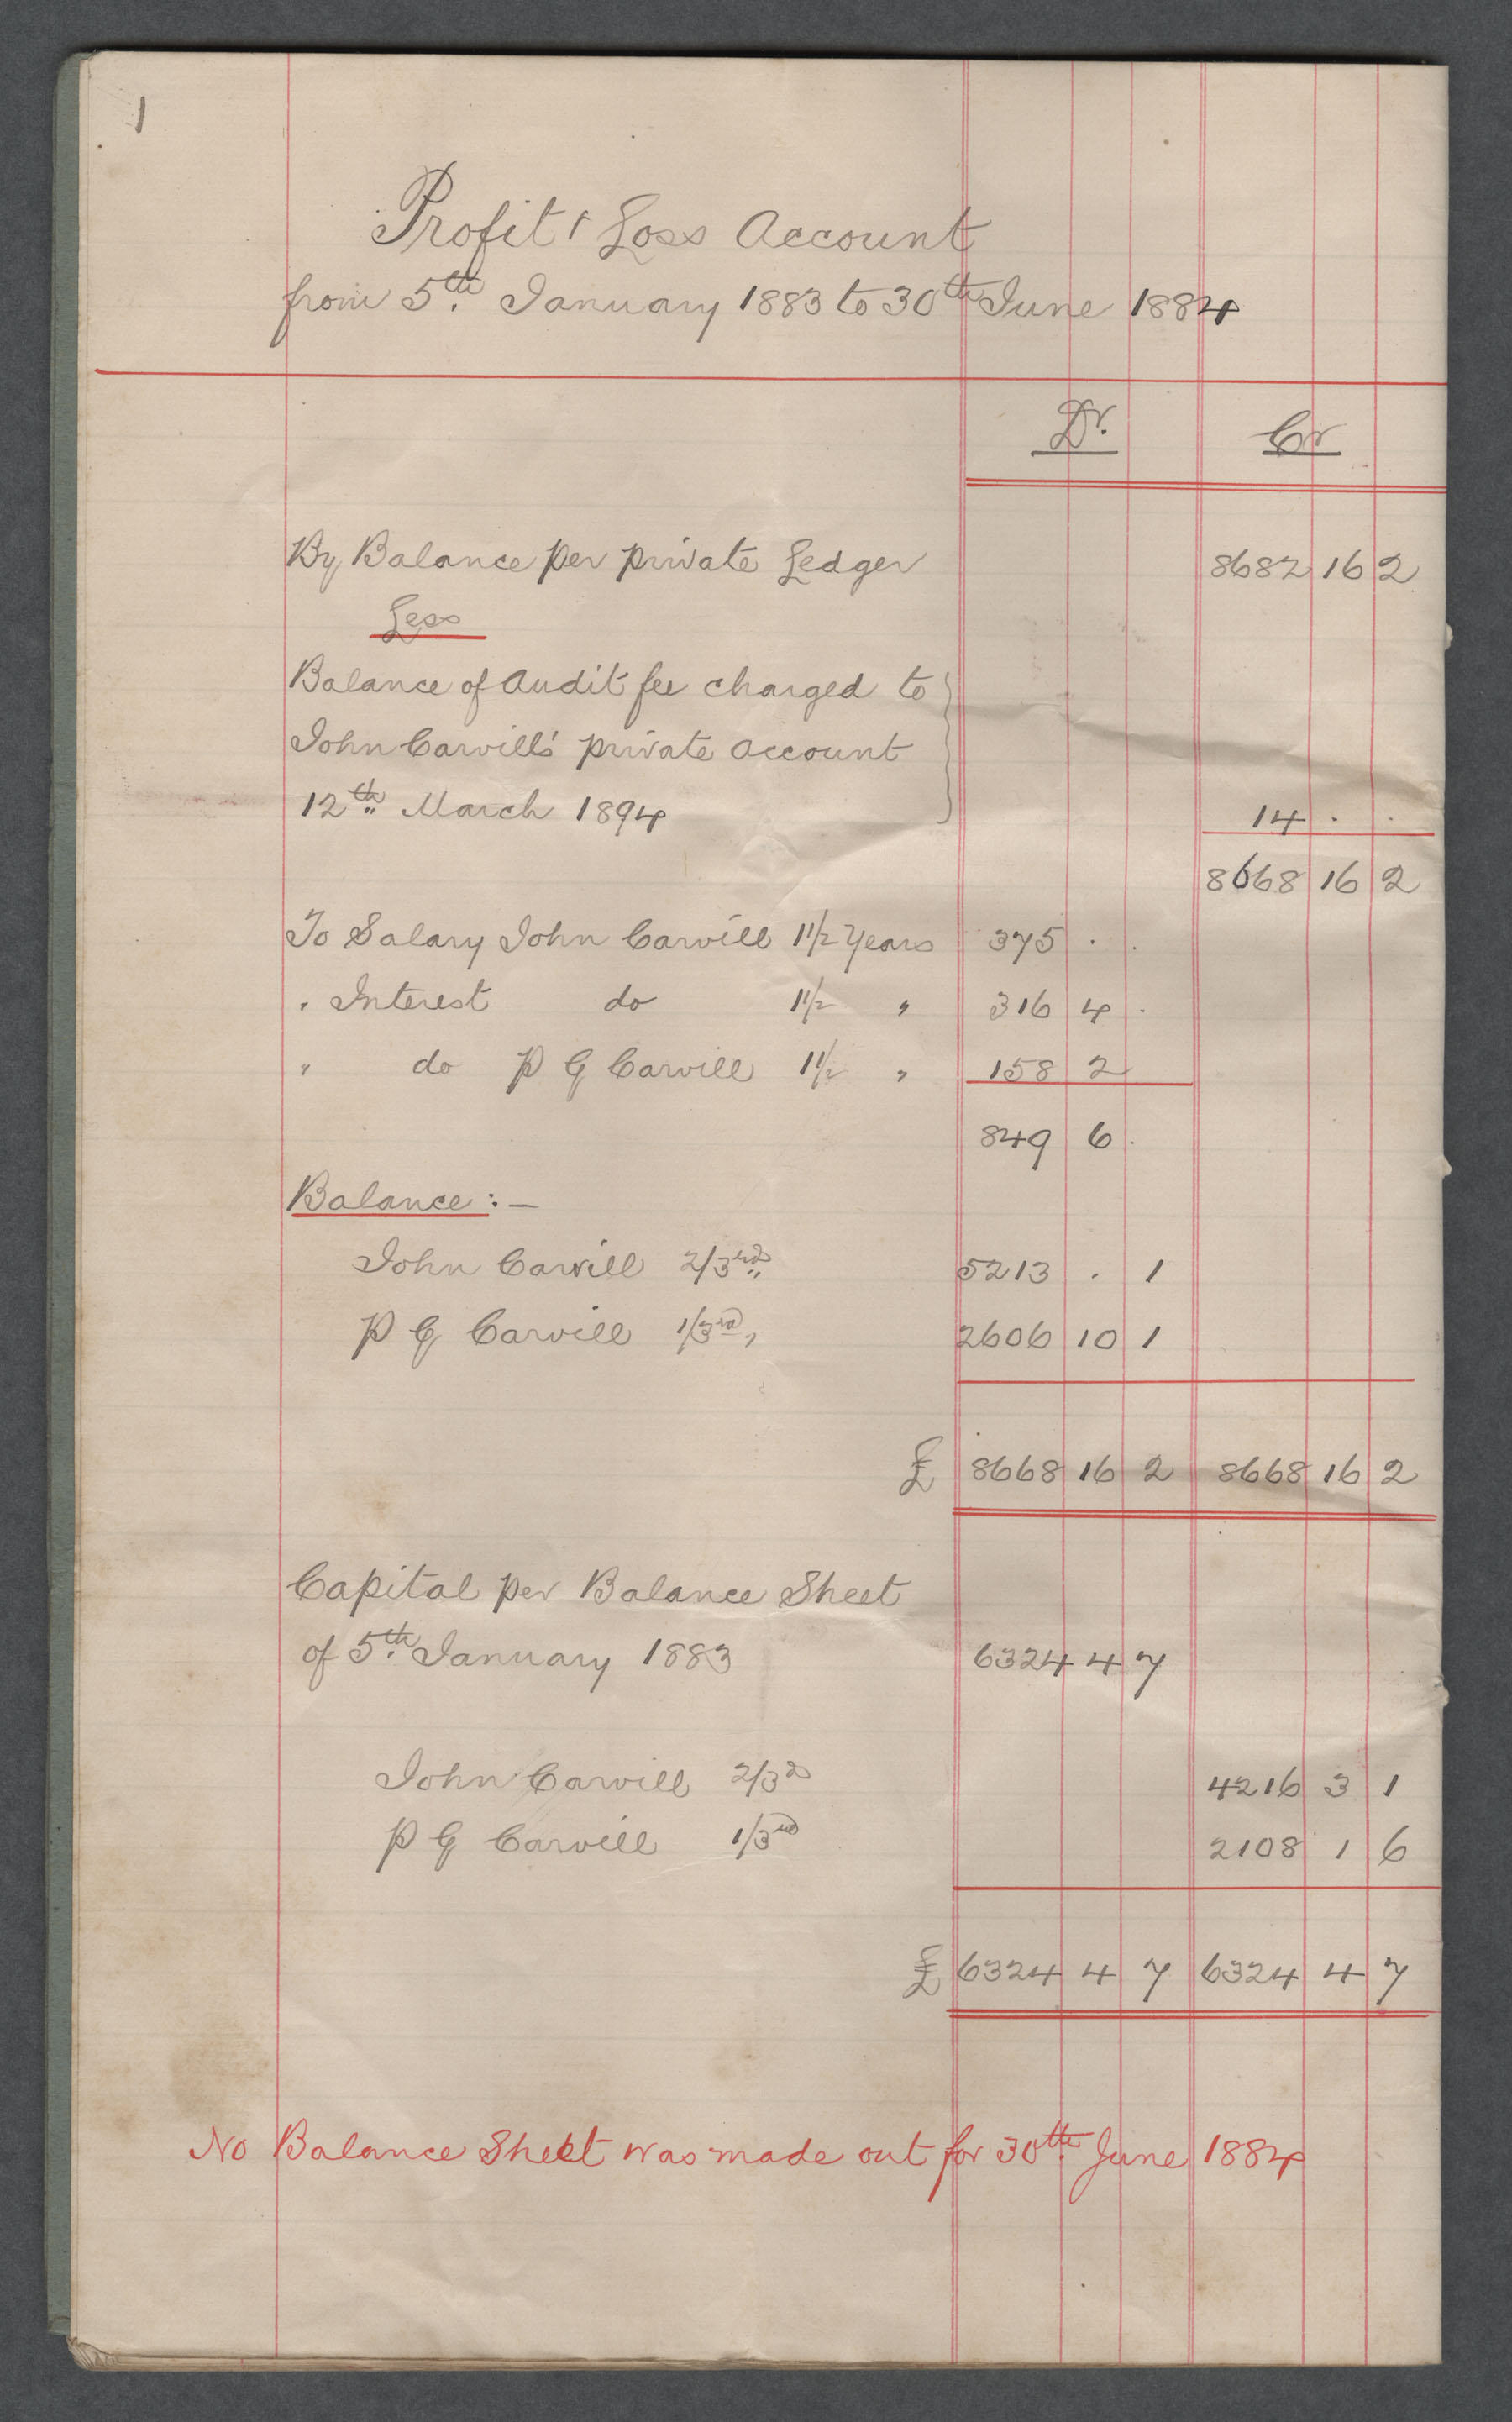 1
Profit & Loss Account
from 5th. January 1883 to 30th June 1884
Dr. Cr
By Balance per private Ledger 8682 16 2
Less
Balance of Audit fee charged to
John Carvill's private Account
12th March 1894 14 . .
8668 16 2
To Salary John Carvill 1 1/2 Years 375 . .
" Interest do 1 1/2 " 316 4 .
" do P G Carvill 1 1/2 " 158 2
849 6 .
Balance :-
John Carvill 2/3rds 5213 . 1
P G Carvill 1/3rd, 2606 10 1
£ 8668 16 2 8668 16 2
Capital per Balance Sheet
of 5th. January 1883 6324 4 7
John Carvill 2/3ds 4216 3 1
P G Carvill 1/3rd 2108 1 6
£ 6324 4 7 6324 4 7
No Balance Sheet was made out for 30th. June 1884